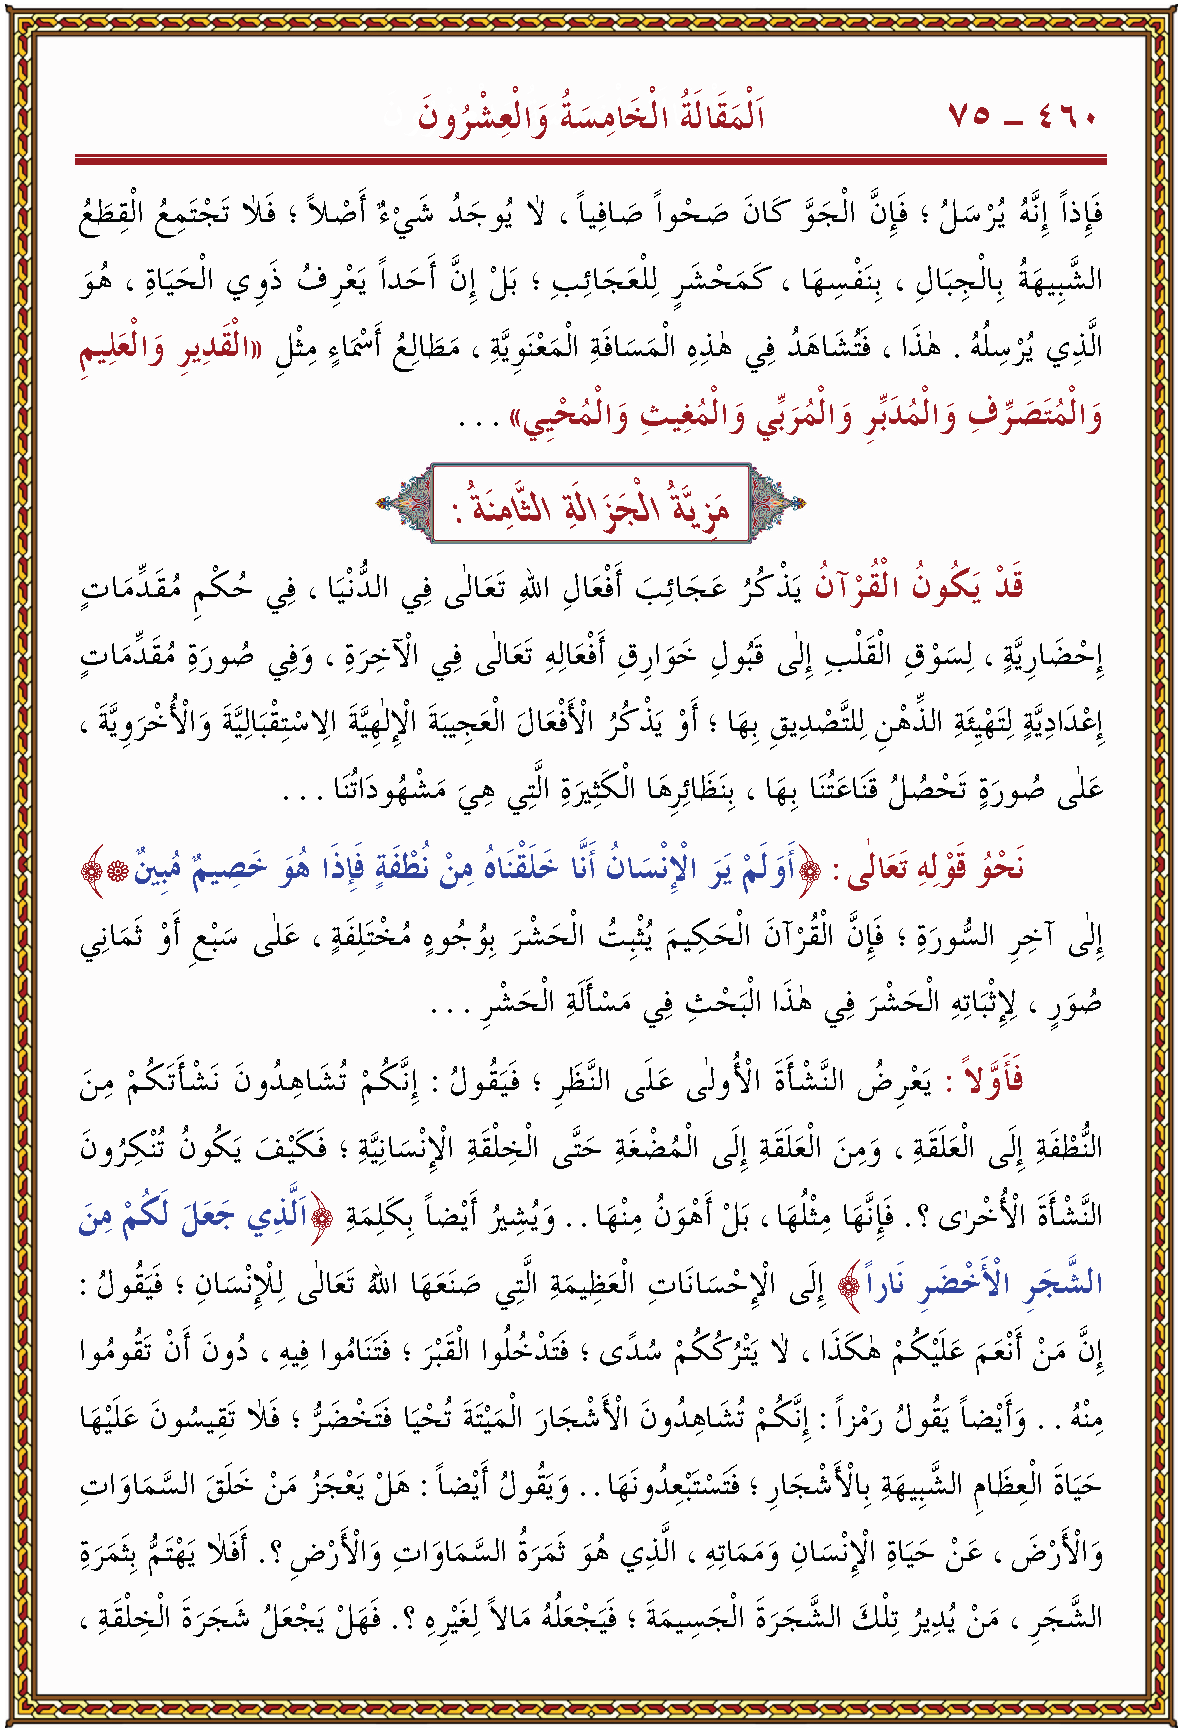 ٤٦٠ – ٧٥ اَلْمَقَالَةُ الْخَامِسَةُ وَالْعِشْرُونَ
فَإِذاً إِنَّهُ يُرْسَلُ ؛ فَإِنَّ الْجَوَّ كَانَ صَحْواً صَافِياً ، لاَ يُوجَدُ شَيْءٌ أَصْلاً ؛ فَلاَ تَجْتَمِعُ الْقِطَعُ
الشَّبِيهَةُ بِالْجِبَالِ ، بِنَفْسِهَا ، كَمَحْشَرٍ لِلْعَجَائِبِ ؛ بَلْ إِنَّ أَحَداً يَعْرِفُ ذَوِي الْحَيَاةِ ، هُوَ
الَّذِي يُرْسِلُهُ . هٰذَا ، فَتُشَاهَدُ فِي هٰذِهِ الْمَسَافَةِ الْمَعْنَوِيَّةِ ، مَطَالِعُ أَسْمَاءٍ مِثْلِ «الْقَدِيرِ وَالْعَلِيمِ
وَالْمُتَصَرِّفِ وَالْمُدَبِّرِ وَالْمُرَبِّي وَالْمُغِيثِ وَالْمُحْيِي» . . .
مَزِيَّةُ الْجَزَالَةِ الثَّامِنَةُ :
قَدْ يَكُونُ الْقُرْآنُ يَذْكُرُ عَجَائِبَ أَفْعَالِ اللهِ تَعَالٰى فِي الدُّنْيَا ، فِي حُكْمِ مُقَدِّمَاتٍ
إِحْضَارِيَّةٍ ، لِسَوْقِ الْقَلْبِ إِلٰى قَبُولِ خَوَارِقِ أَفْعَالِهِ تَعَالٰى فِي الْآخِرَةِ ، وَفِي صُورَةِ مُقَدِّمَاتٍ
إِعْدَادِيَّةٍ لِتَهْيِئَةِ الذِّهْنِ لِلتَّصْدِيقِ بِهَا ؛ أَوْ يَذْكُرُ الْأَفْعَالَ الْعَجِيبَةَ الْإِلٰهِيَّةَ الاِسْتِقْبَالِيَّةَ وَالْأُخْرَوِيَّةَ ،
عَلٰى صُورَةٍ تَحْصُلُ قَنَاعَتُنَا بِهَا ، بِنَظَائِرِهَا الْكَثِيرَةِ الَّتِي هِيَ مَشْهُودَاتُنَا . . .
نَحْوُ قَوْلِهِ تَعَالٰى : ﴿أَوَلَمْ يَرَ الْإِنْسَانُ أَنَّا خَلَقْنَاهُ مِنْ نُطْفَةٍ فَإِذَا هُوَ خَصِيمٌ مُبِينٌ ۝﴾
إِلٰى آخِرِ السُّورَةِ ؛ فَإِنَّ الْقُرْآنَ الْحَكِيمَ يُثْبِتُ الْحَشْرَ بِوُجُوهٍ مُخْتَلِفَةٍ ، عَلٰى سَبْعِ أَوْ ثَمَانِي
صُوَرٍ ، لِإِثْبَاتِهِ الْحَشْرَ فِي هٰذَا الْبَحْثِ فِي مَسْأَلَةِ الْحَشْرِ . . .
فَأَوَّلاً : يَعْرِضُ النَّشْأَةَ الْأُولٰى عَلَى النَّظَرِ ؛ فَيَقُولُ : إِنَّكُمْ تُشَاهِدُونَ نَشْأَتَكُمْ مِنَ
النُّطْفَةِ إِلَى الْعَلَقَةِ ، وَمِنَ الْعَلَقَةِ إِلَى الْمُضْغَةِ حَتَّى الْخِلْقَةِ الْإِنْسَانِيَّةِ ؛ فَكَيْفَ يَكُونُ تُنْكِرُونَ
النَّشْأَةَ الْأُخْرٰى ؟. فَإِنَّهَا مِثْلُهَا ، بَلْ أَهْوَنُ مِنْهَا . . وَيُشِيرُ أَيْضاً بِكَلِمَةِ ﴿اَلَّذِي جَعَلَ لَكُمْ مِنَ
الشَّجَرِ الْأَخْضَرِ نَاراً﴾ إِلَى الْإِحْسَانَاتِ الْعَظِيمَةِ الَّتِي صَنَعَهَا اللهُ تَعَالٰى لِلْإِنْسَانِ ؛ فَيَقُولُ :
إِنَّ مَنْ أَنْعَمَ عَلَيْكُمْ هٰكَذَا ، لاَ يَتْرُكُكُمْ سُدًى ؛ فَتَدْخُلُوا الْقَبْرَ ؛ فَتَنَامُوا فِيهِ ، دُونَ أَنْ تَقُومُوا
مِنْهُ . . وَأَيْضاً يَقُولُ رَمْزاً : إِنَّكُمْ تُشَاهِدُونَ الْأَشْجَارَ الْمَيْتَةَ تُحْيَا فَتَخْضَرُّ ؛ فَلاَ تَقِيسُونَ عَلَيْهَا
حَيَاةَ الْعِظَامِ الشَّبِيهَةِ بِالْأَشْجَارِ ؛ فَتَسْتَبْعِدُونَهَا . . وَيَقُولُ أَيْضاً : هَلْ يَعْجُزُ مَنْ خَلَقَ السَّمَاوَاتِ
وَالْأَرْضَ ، عَنْ حَيَاةِ الْإِنْسَانِ وَمَمَاتِهِ ، الَّذِي هُوَ ثَمَرَةُ السَّمَاوَاتِ وَالْأَرْضِ ؟. أَفَلاَ يَهْتَمُّ بِثَمَرَةِ
الشَّجَرِ ، مَنْ يُدِيرُ تِلْكَ الشَّجَرَةَ الْجَسِيمَةَ ؛ فَيَجْعَلُهُ مَالاً لِغَيْرِهِ ؟. فَهَلْ يَجْعَلُ شَجَرَةَ الْخِلْقَةِ ،